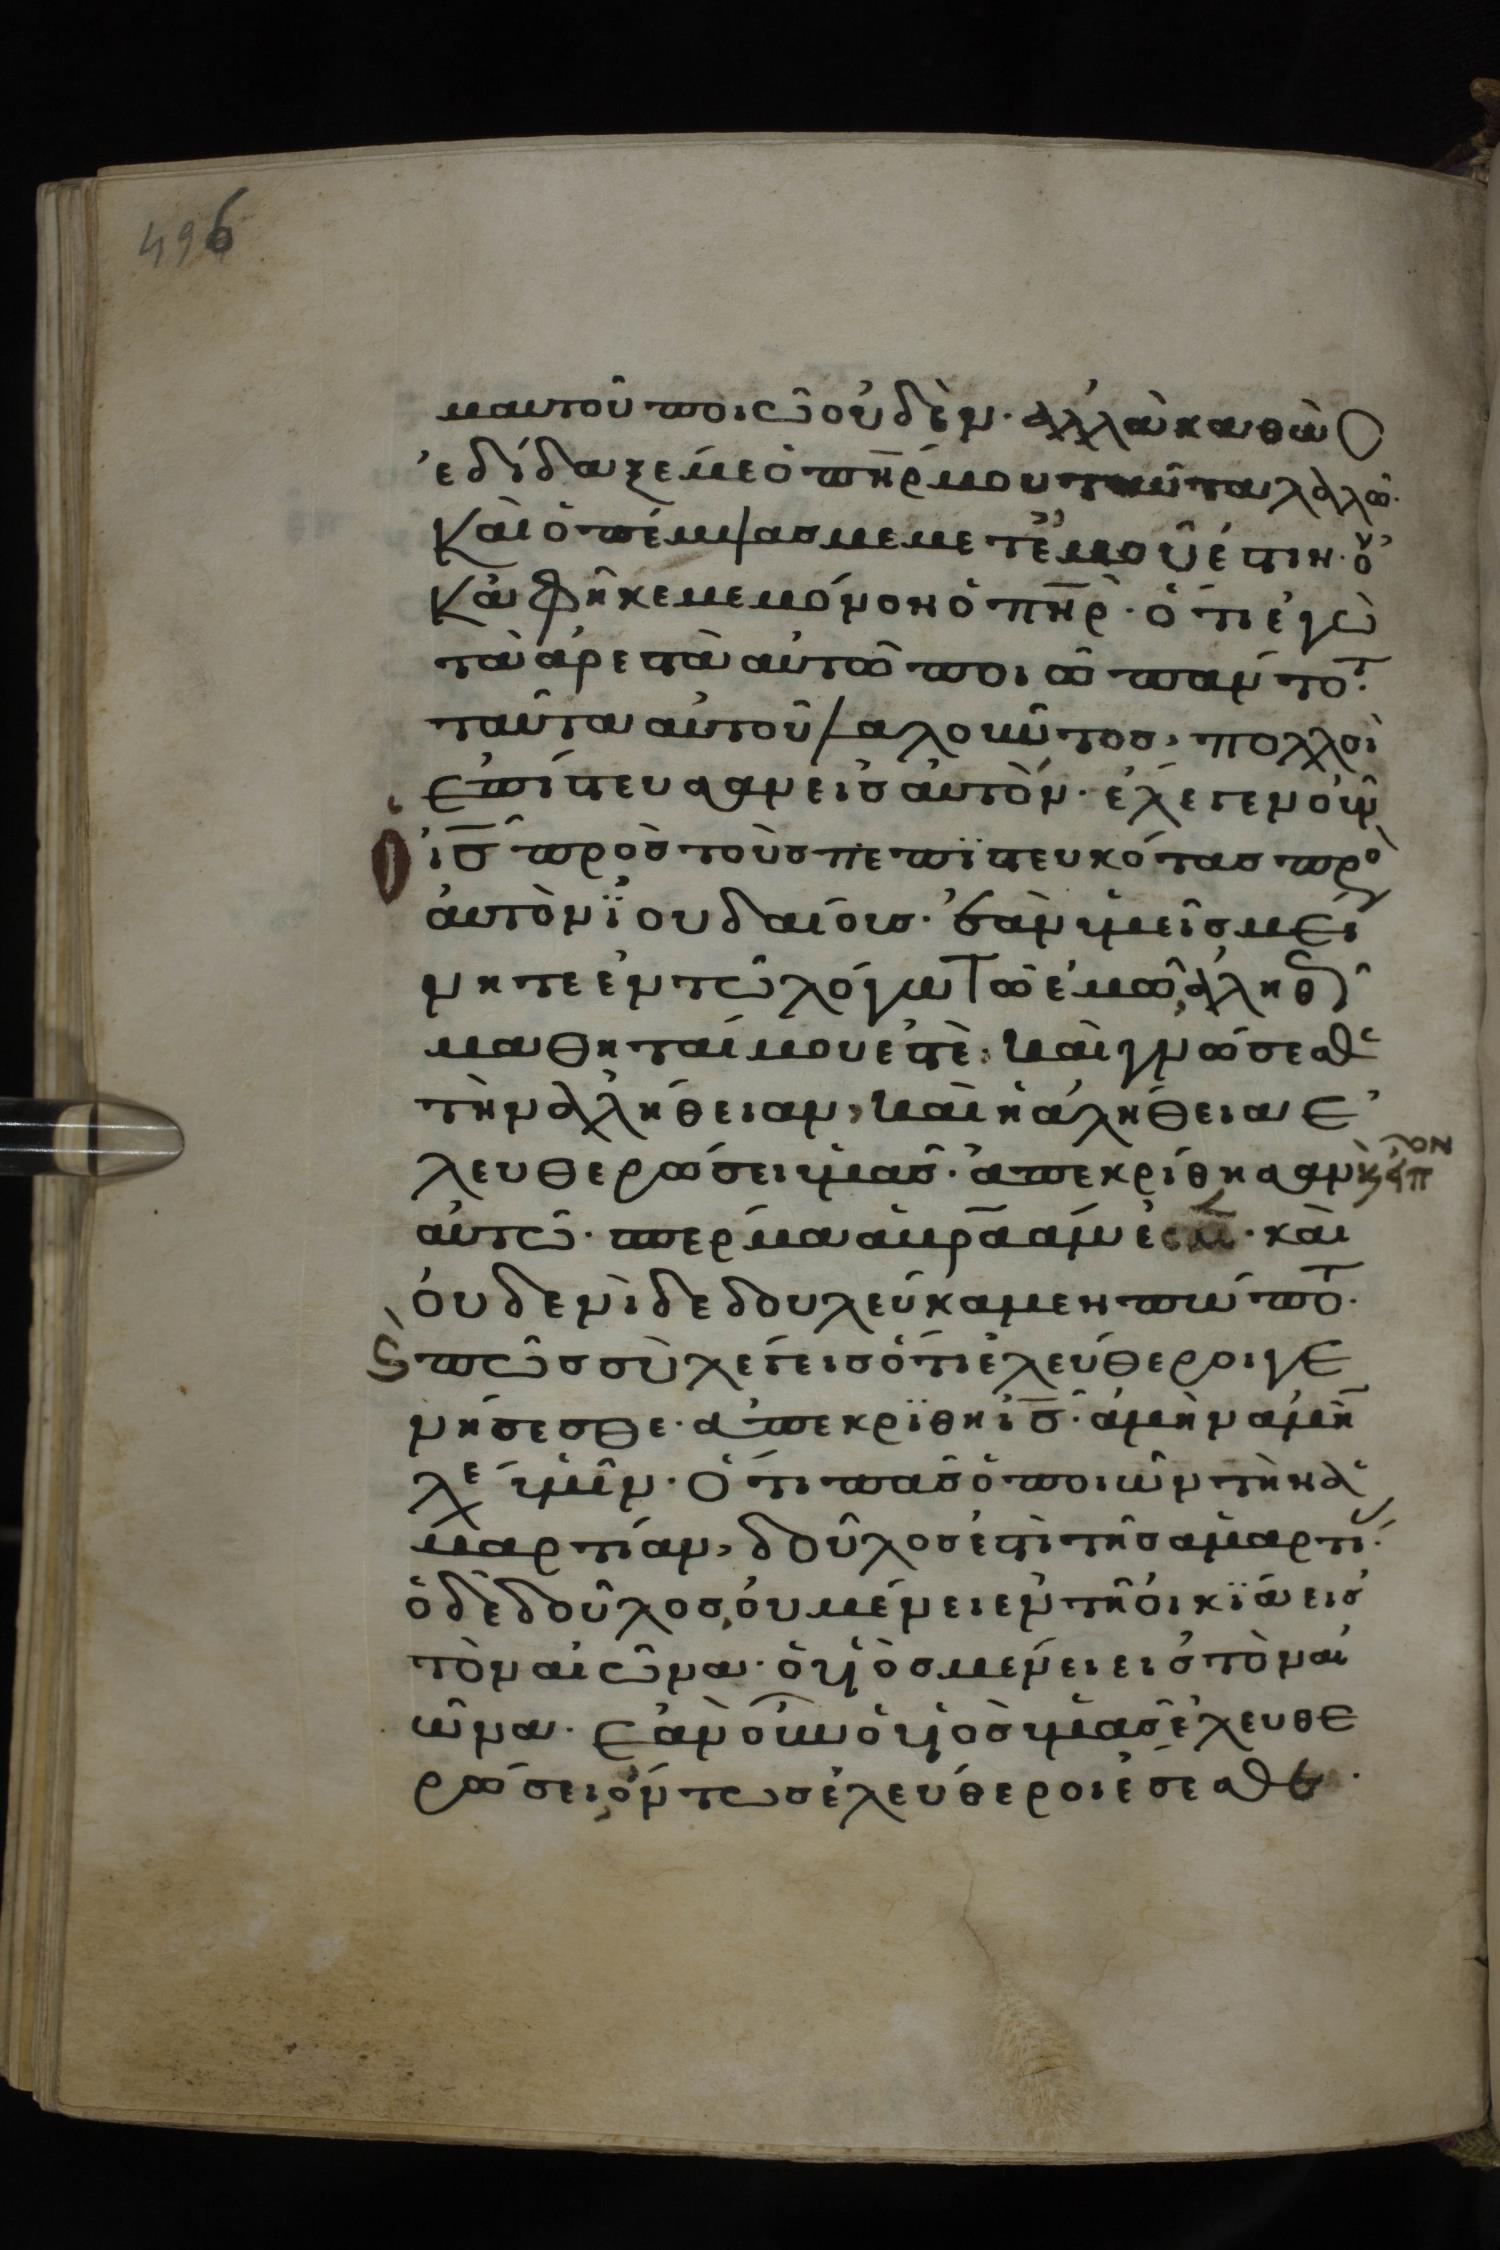 496
μαυτοῦ ποιῶ οὐδὲν· ἀλλὰ καθὼσ
ἐδίδαξέ με ὁ πηρ μου ταῦτα λαλῶ·
Καὶ ὁ πέμψασ με μετ ἐμοῦ ἐστιν· οὐ
Κἀφῆκε με μόνον ὁ πηρ· ὅτι ἐγὼ
τὰ ἀρεστὰ αὐτῶ ποιῶ πάντοτ·
ταῦτα αὐτοῦ λαλοῦντοσ, πολλοὶ
ἐπίστευσαν εἰσ αὐτὸν· ἔλεγεν οὖν
Ὁ ισ πρὸσ τοὺσ πεπϊστευκότασ πρὸ
αὐτὸν ϊουδαίουσ· ἐὰν ὑμεῖσ μεί
νητε ἐν τῶ λόγω τῶ ἐμῶ, ἀληθῶ
μαθηταί μου ἐστὲ· καὶ γνώσεσθε
τὴν ἀλήθειαν, καὶ ἡ ἀλήθεια ἐ
λευθερώσει ὑμᾶσ· ἀπεκρίθησαν κ επον
αὐτῶ· σπέρμα ἀβρααμ ἐσμ· καὶ
οὐδενὶ δεδουλεύκαμεν πώποτ·
πῶσ σὺ λέγεισ ὅτι ἐλεύθεροι γε
νήσεσθε· ἀπεκρϊθη ισ· ἀμὴν ἀμὴν
λε ὑμῖν· Ὅτι πᾶσ ὁ ποιῶν τὴν ἁ
μαρτίαν, δοῦλοσ ἐστὶ τῆσ ἁμαρτί·
ὁ δὲ δοῦλοσ, οὐ μένει ἐν τῆ οἰκϊα εἰσ
τὸν αἰῶνα· ὁ υἱὸσ μένει εἰσ τὸν αἰ
ῶνα· ἐὰν οὖν ὁ υἱὸσ ὑμᾶσ ἐλευθε
ρώσει, ὄντωσ ἐλεύθεροι ἔσεσθε·